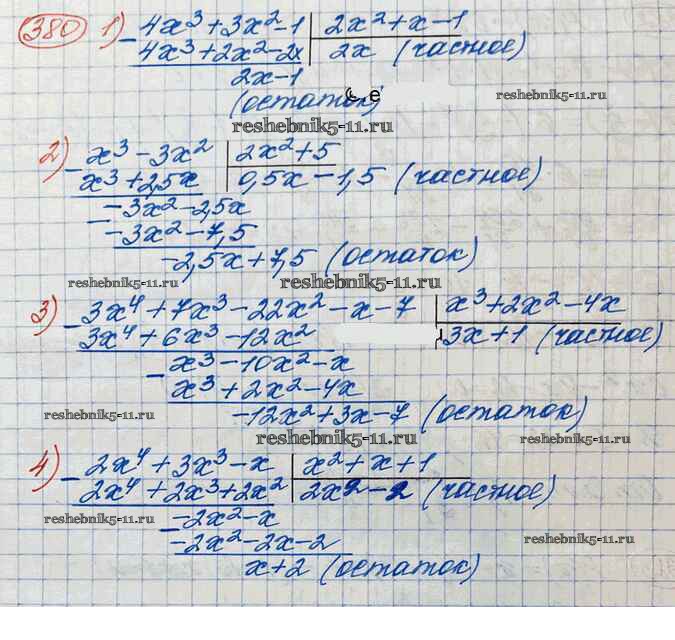 380 1) - 4x³ + 3x² - 1 | 2x² + x - 1
4x³ + 2x² - 2x | 2x (частное)
2x - 1
(остаток) e
reshebnik5-11.ru
reshebnik5-11.ru
2) - x³ - 3x² | 2x² + 5
x³ + 2,5x | 0,5x - 1,5 (частное)
- -3x² - 2,5x
-3x² - 7,5
-2,5x + 7,5 (остаток)
reshebnik5-11.ru
reshebnik5-11.ru
3) - 3x⁴ + 7x³ - 22x² - x - 7 | x³ + 2x² - 4x
3x⁴ + 6x³ - 12x² | 3x + 1 (частное)
- x³ - 10x² - x
x³ + 2x² - 4x
-12x² + 3x - 7 (остаток)
reshebnik5-11.ru
reshebnik5-11.ru
reshebnik5-11.ru
4) - 2x⁴ + 3x³ - x | x² + x + 1
2x⁴ + 2x³ + 2x² | 2x² - 2 (частное)
- -2x² - x
-2x² - 2x - 2
x + 2 (остаток)
reshebnik5-11.ru
reshebnik5-11.ru